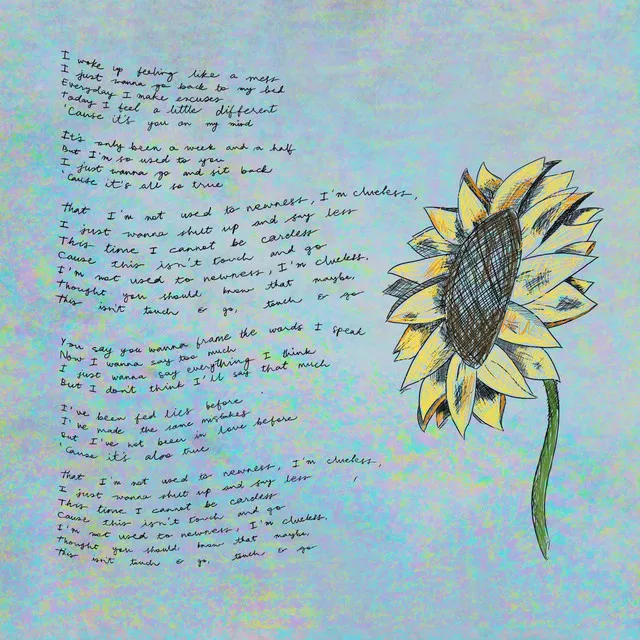 I woke up feeling like a mess
I just wanna go back to my bed
Everyday I make excuses
Today I feel a little different
'Cause it's you on my mind
It's only been a week and a half
But I'm so used to you
I just wanna go and sit back
'Cause it's all so true
That I'm not used to newness, I'm clueless,
I just wanna shut up and say less
This time I cannot be careless
Cause this isn't touch and go
I'm not used to newness, I'm clueless,
Thought you should know that maybe,
This isn't touch & go, touch & go
You say you wanna frame the words I speak
Now I wanna say too much
I just wanna say everything I think
But I don't think I'll say that much
I've been fed lies before
I've made the same mistakes
But I've not been in love before
'Cause it's also true
That I'm not used to newness, I'm clueless,
I just wanna shut up and say less
This time I cannot be careless
Cause this isn't touch and go
I'm not used to newness, I'm clueless,
Thought you should know that maybe,
This isn't touch & go, touch & go